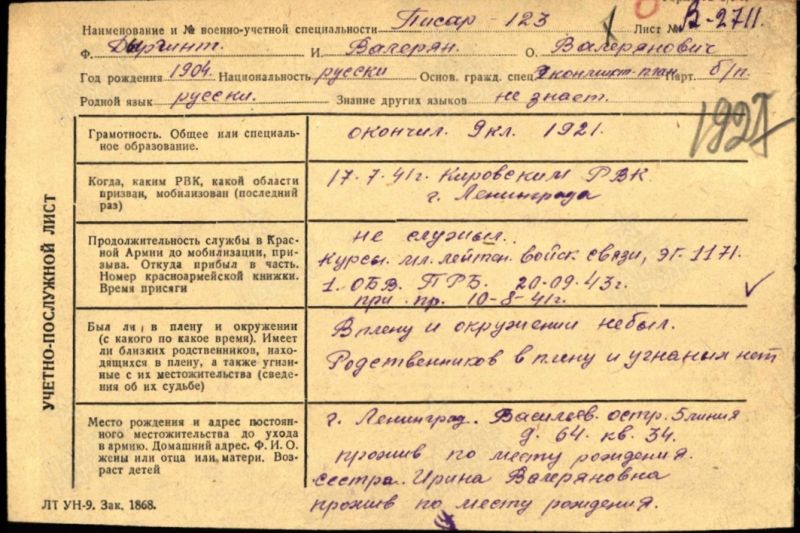 Наименование и № военно-учетной специальности Писар-123 Лист № В-2711.
Ф. И. Валерян. О. Валерянович
Год рождения 1904. Национальность русски Основ. гражд. спец. Парт. б/п.
Родной язык русски. Знание других языков не знает.
192
УЧЕТНО-ПОСЛУЖНОЙ ЛИСТ
Грамотность. Общее или специаль-
ное образование.
окончил. 9 кл. 1921.
Когда, каким РВК, какой области
призван, мобилизован (последний
раз)
17.7.41г. Кировским РВК
г. Ленинграда
Продолжительность службы в Крас-
ной Армии до мобилизации, при-
зыва. Откуда прибыл в часть.
Номер красноармейской книжки.
Время присяги
не служыл.
Курсы. мл. лейтен. войск связи, эг. 1171.
1. ОБВ. ПРБ. 20-09.43г.
при. пр. 10-8-41г.
Был ли в плену и окружении
(с какого по какое время). Имеет
ли близких родственников, нахо-
дящихся в плену, а также угнан-
ные с их местожительства (сведе-
ния об их судьбе)
В плену и окружении небыл.
Родственников в плену и угнаных нет
Место рождения и адрес постоян-
ного местожительства до ухода
в армию. Домашний адрес. Ф. И. О.
жены или отца или матери. Воз-
раст детей
г. Ленинград. Васильев. остр. 5 линия
д. 64. кв. 34.
прожив по месту рождения.
сестра. Ирина Валеряновна
прожив по месту рождения.
ЛТ УН-9. Зак. 1868.